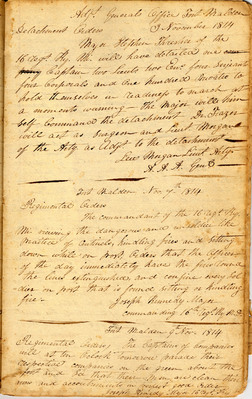 Adjt. Generals Office Fort Malden
Detachment Orders 3 November 1814
Major Stephen
16 Regt will have detailed one
Captain two Lieuts two Ens four Serjeants
four Corporals and one hundred Privates to
hold themselves in readiness to march at
a moments warning the Major will him
self Command the detachment Dr.
will act as Surgeon and Lieut Morgan
of the Arty as Adjt to the detachment
Lew Morgan Lieut Arty
A. A. A. Genl
Fort Malden Nov 7th 1814
Regimental Orders
The commandant of the 16 Regt
viewing the dangerous and
practice of Centinels kindling fires and sitting
down while on post, Orders that the Officers
of the day immediately have the fires round
the lines extinguished and confine every Sol
dier on post that is found sitting or kindling
fire
Joseph Kennedy Major
commanding 16 Regt
Fort Malden 9 Nov. 1814
Regimental Orders, The Captains of Companies
will at ten Oclock Tomorrow parade their
respective companies on the green above the
fort and see that those men are clean their
arms and accoutrements in good order
Joseph Kennedy Major 16 Regt